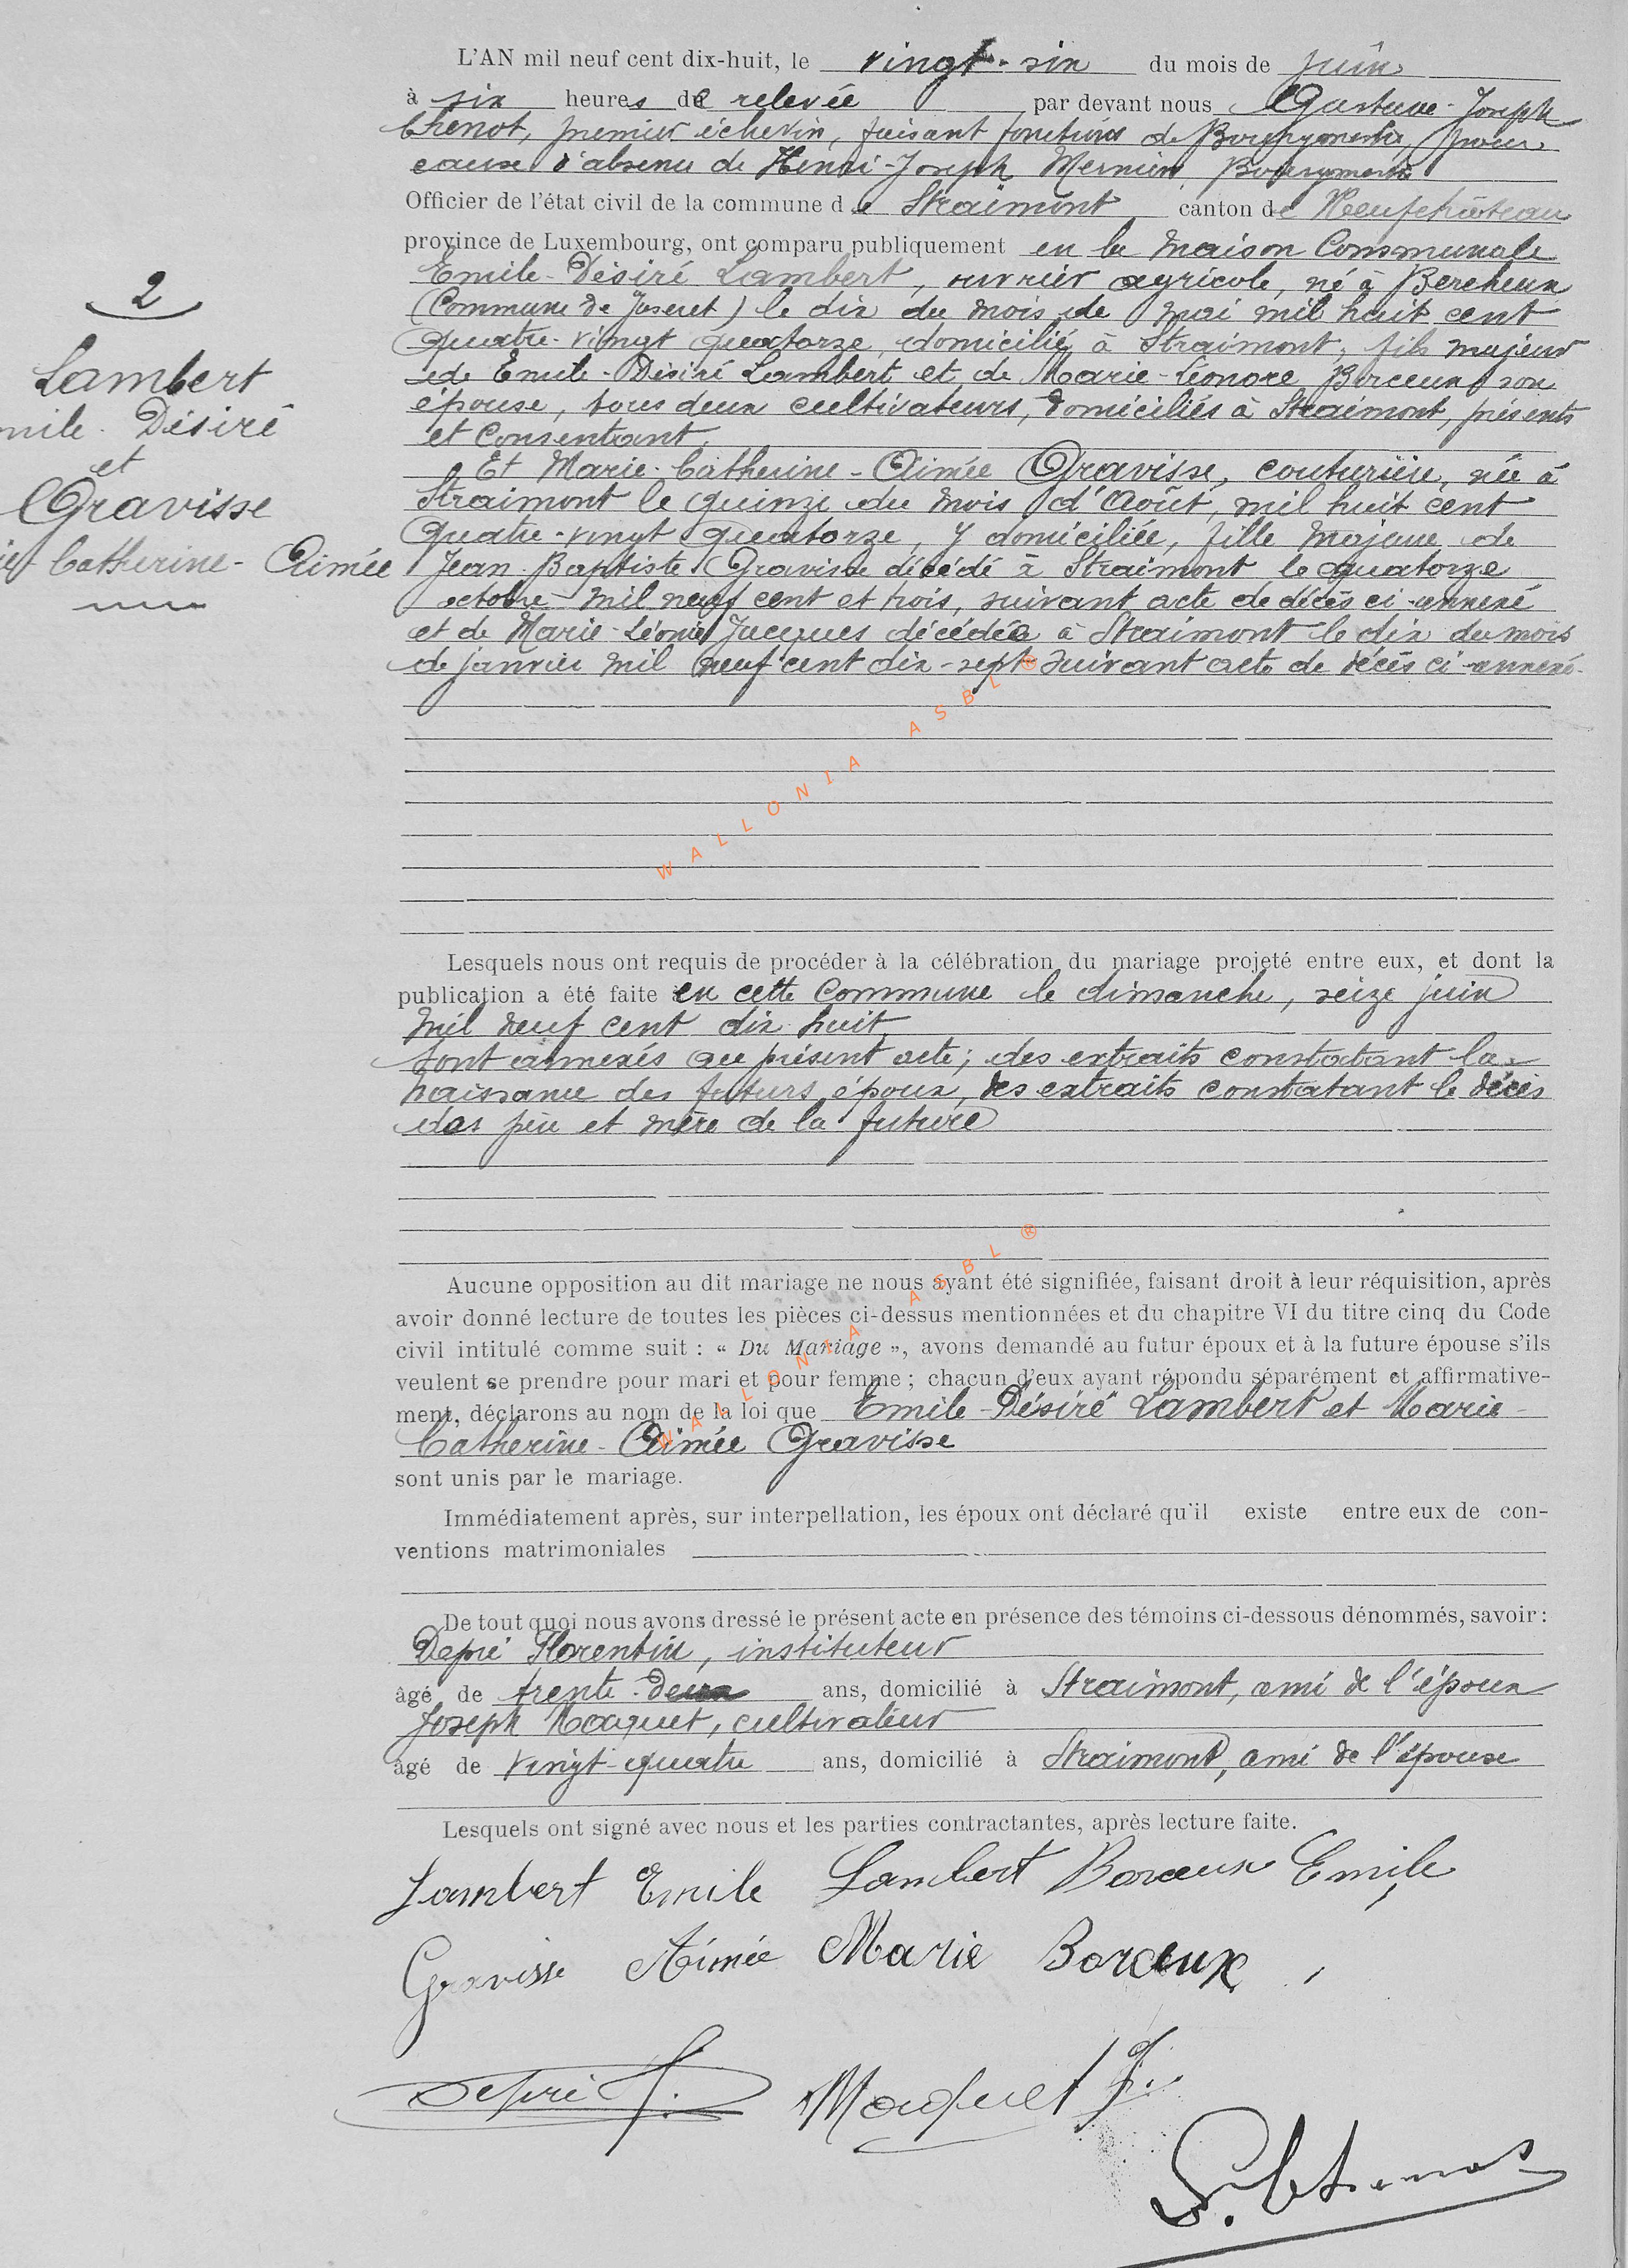 L'AN mil neuf cent dix-huit, le vingt-six du mois de juin
à six heures de relevée par devant nous Gustave-Joseph
Chenot, premier échevin, faisant fonctions de Bourgmestre, pour
cause d'absence de Henri-Joseph Mernier, Bourgmestre
Officier de l'état civil de la commune de Straimont canton de Neufchâteau
province de Luxembourg, ont comparu publiquement en la maison Communale
Emile-Désiré Lambert, ouvrier agricole, né à Bercheux
(Commune de Juseret) le dix du mois de mai mil huit cent
quatre-vingt quatorze, domicilié à Straimont, fils majeur
de Emile-Désiré Lambert et de Marie-Léonore Borceux son
épouse, tous deux cultivateurs, domiciliés à Straimont, présents
et consentant.
Et Marie-Catherine-Aimée Gravisse, couturière, née à
Straimont le quinze du mois d'Août, mil huit cent
quatre-vingt quatorze, y domiciliée, fille majeure de
Jean-Baptiste Gravisse décédé à Straimont le quatorze
octobre mil neuf cent et trois, suivant acte de décès ci-annexé
et de Marie-Léonie Jacques décédée à Straimont le dix du mois
de janvier mil neuf cent dix-sept suivant acte de décès ci-annexé.
2
Lambert
mile-Désiré
et
Gravisse
ie Catherine-Aimée
WALLONIA ASBL ®
Lesquels nous ont requis de procéder à la célébration du mariage projeté entre eux, et dont la
publication a été faite en cette Commune le dimanche, seize juin
mil neuf cent dix huit.
sont annexés au présent acte; des extraits constatant la
naissance des futurs époux, des extraits constatant le décès
des père et mère de la future
Aucune opposition au dit mariage ne nous ayant été signifiée, faisant droit à leur réquisition, après
avoir donné lecture de toutes les pièces ci-dessus mentionnées et du chapitre VI du titre cinq du Code
civil intitulé comme suit : « Du Mariage », avons demandé au futur époux et à la future épouse s'ils
veulent se prendre pour mari et pour femme ; chacun d'eux ayant répondu séparément et affirmative-
ment, déclarons au nom de la loi que Emile-Désiré Lambert et Marie-
Catherine-Aimée Gravisse
sont unis par le mariage.
WALLONIA ASBL ®
Immédiatement après, sur interpellation, les époux ont déclaré qu'il existe entre eux de con-
ventions matrimoniales
De tout quoi nous avons dressé le présent acte en présence des témoins ci-dessous dénommés, savoir :
Depré Florentin, instituteur
âgé de trente-deux ans, domicilié à Straimont, ami de l'époux
Joseph Maquet, cultivateur
âgé de vingt-quatre ans, domicilié à Straimont, ami de l'épouse
Lesquels ont signé avec nous et les parties contractantes, après lecture faite.
Lambert Emile Lambert Borceux Emile
Gravisse Aimée Marie Borceux
Depré F. Maquet J.